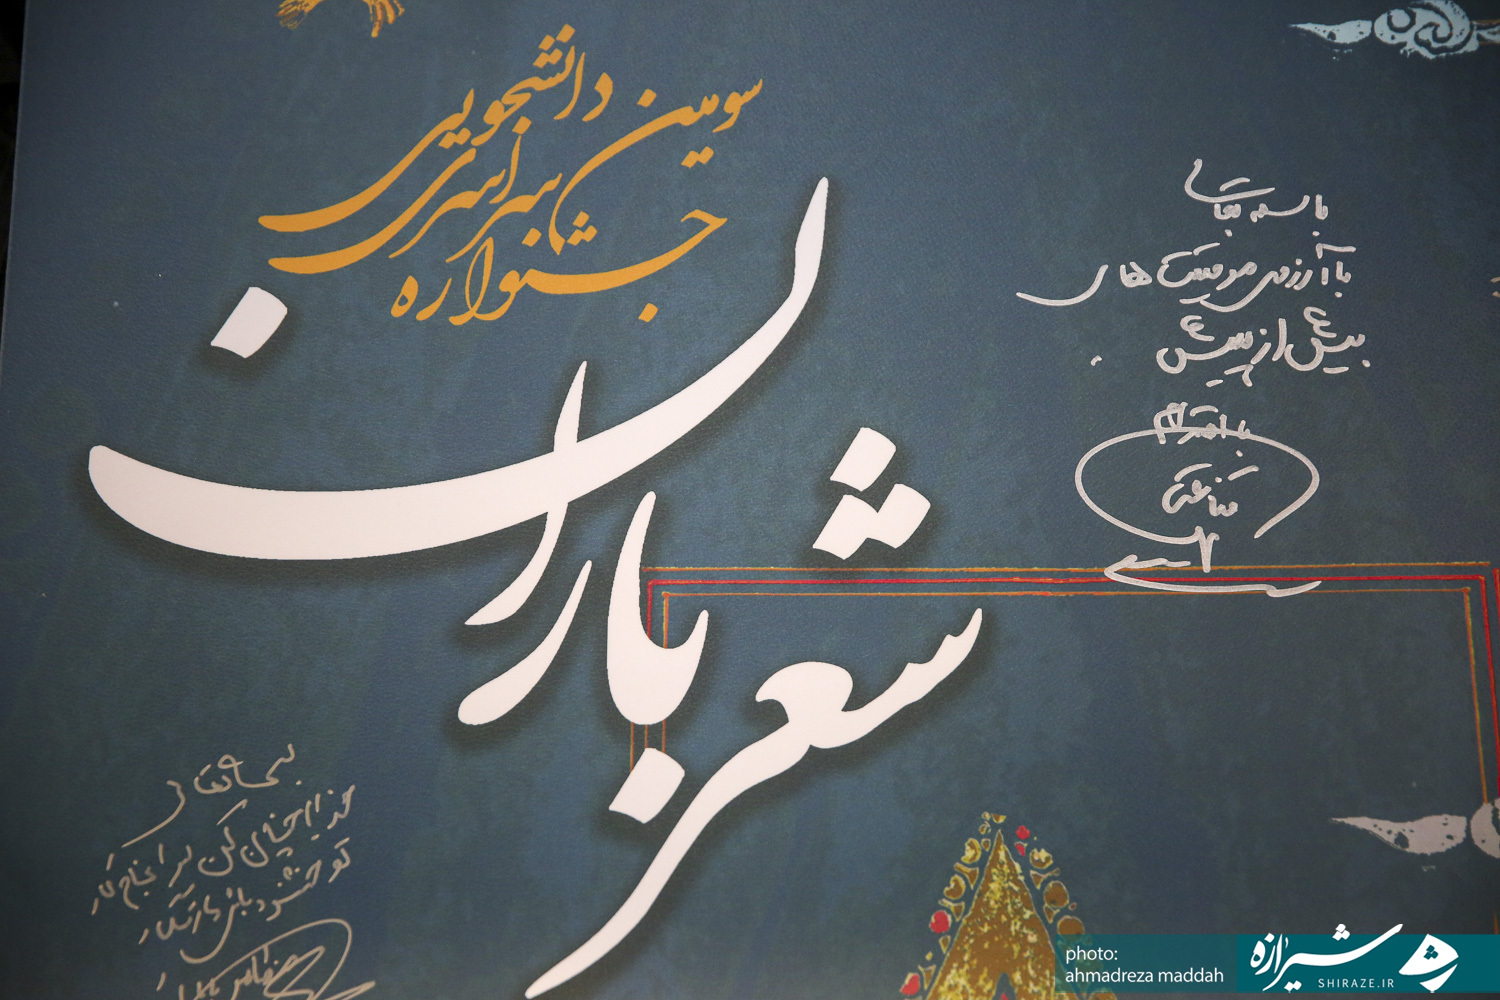 سومین دانشجویی
جشنواره سراسری
شعر باران
با آرزوی موفقیت های
بیش از پیش
با احترام
قناعتی
خدایا چنان کن سرانجام کار
تو خشنود باشی و ما رستگار
photo:
ahmadreza maddah
شیرازه
SHIRAZE.IR